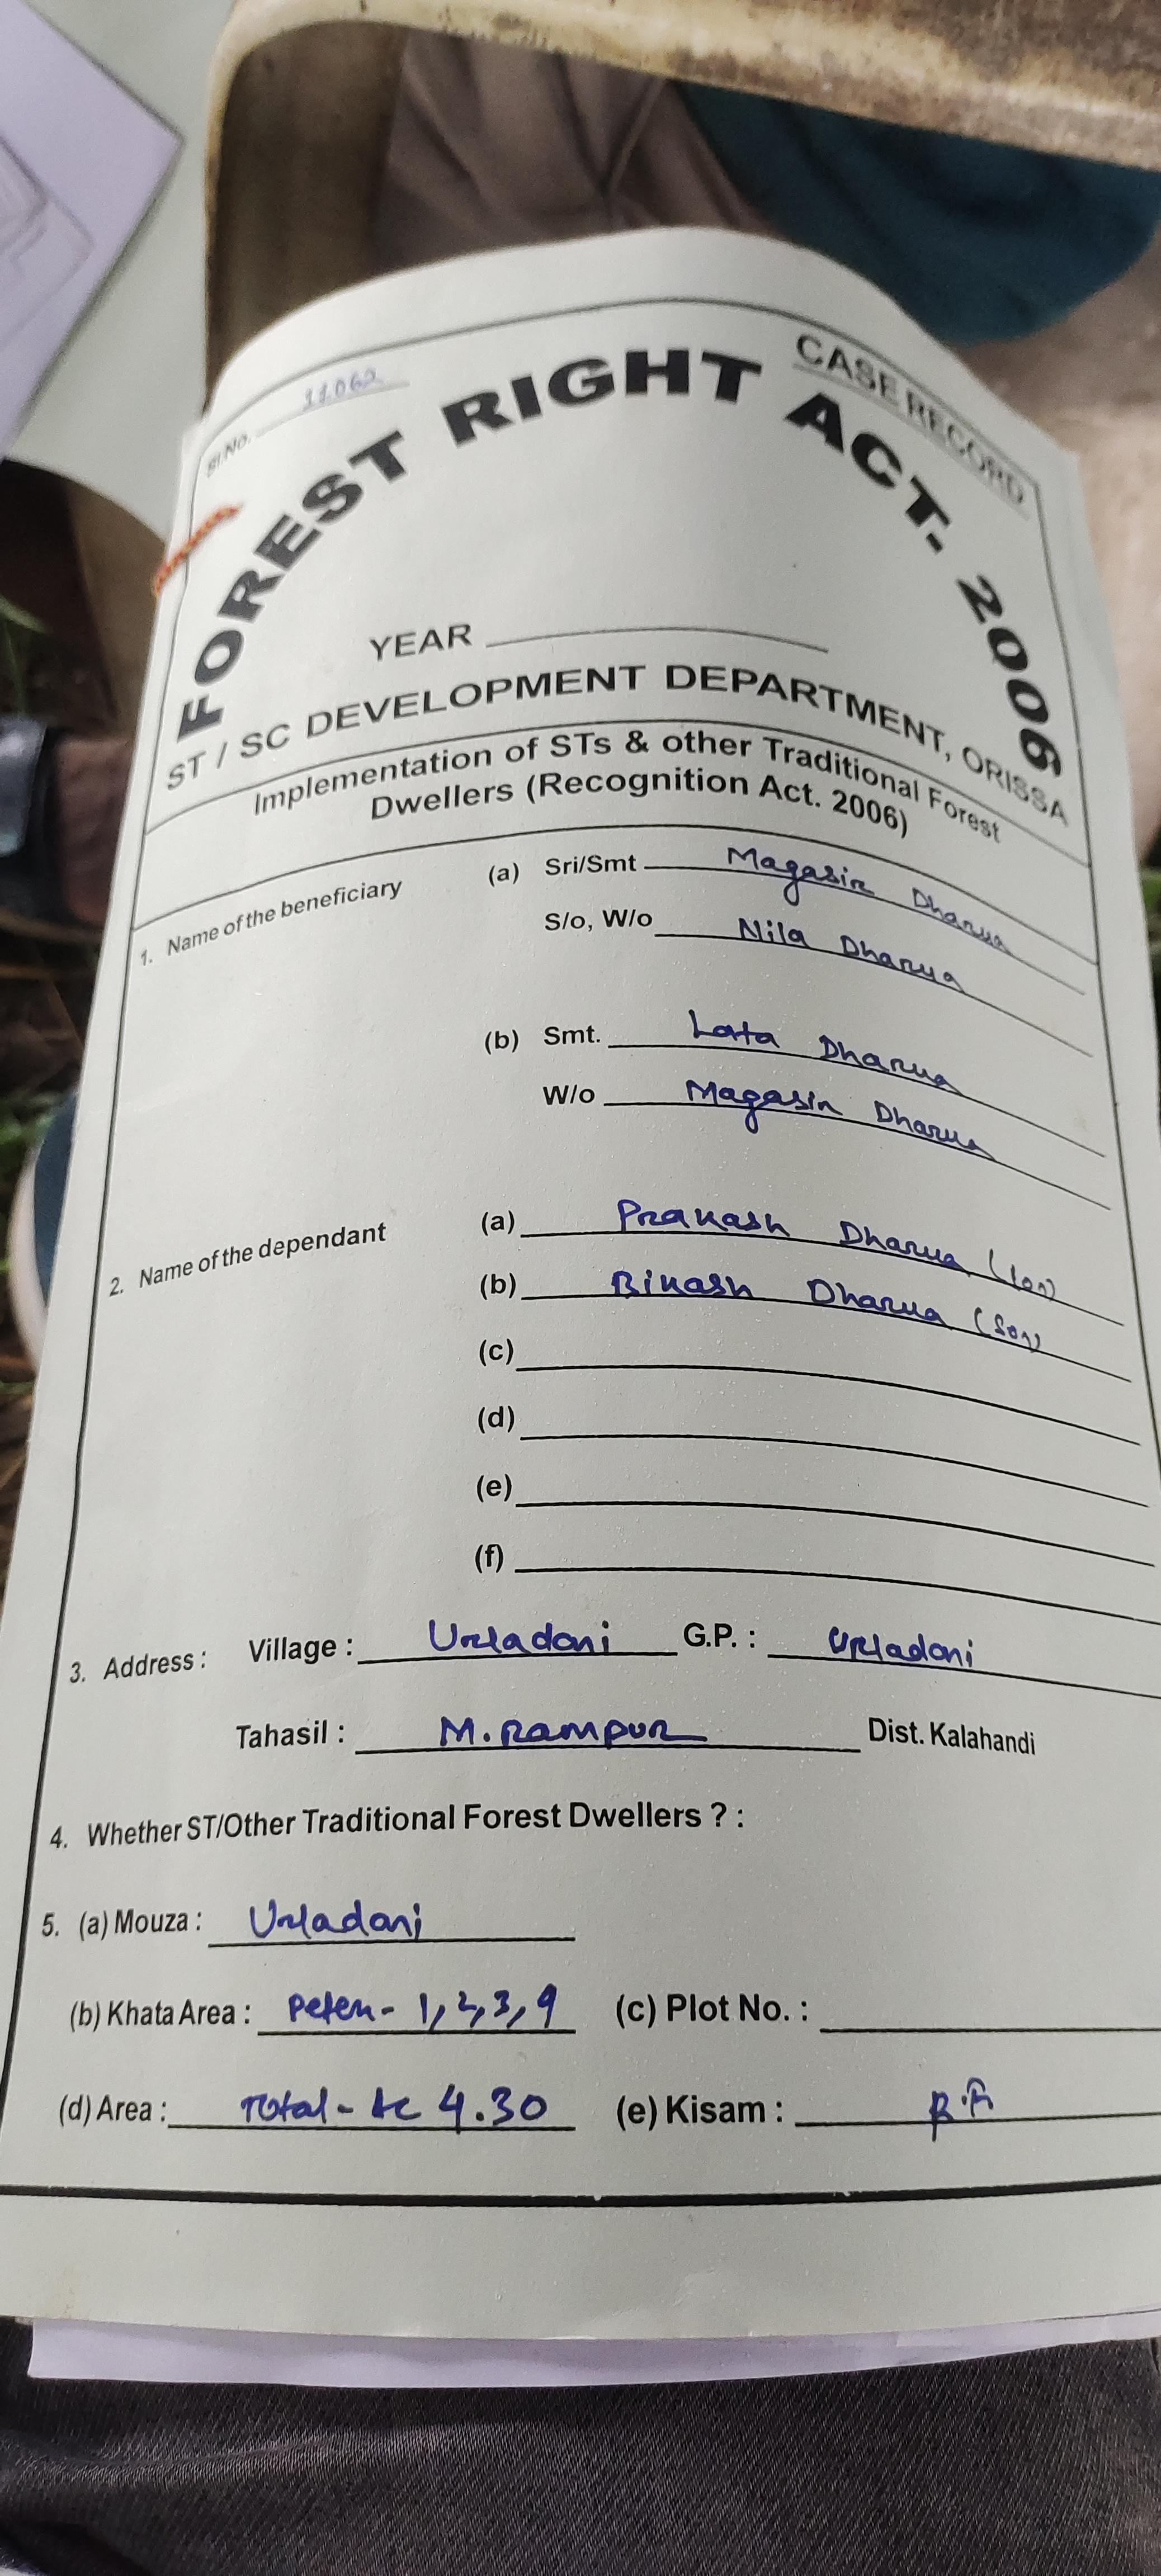 CASE RECORD
Sl.No. 11062
FOREST RIGHT ACT. 2006
YEAR
ST / SC DEVELOPMENT DEPARTMENT, ORISSA
Implementation of STs & other Traditional Forest
Dwellers (Recognition Act. 2006)
1. Name of the beneficiary (a) Sri/Smt Magasir Dharua
S/o, W/o Nila Dharua
(b) Smt. Lata Dharua
W/o Magasir Dharua
2. Name of the dependant (a) Prakash Dharua (son)
(b) Bikash Dharua (son)
(c)
(d)
(e)
(f)
3. Address : Village : Urladani G.P. : Urladani
Tahasil : M. Rampur Dist. Kalahandi
4. Whether ST/Other Traditional Forest Dwellers ? :
5. (a) Mouza : Urladani
(b) Khata Area : 1, 2, 3, 9 (c) Plot No. :
(d) Area : Total - Ac 4.30 (e) Kisam : R.F